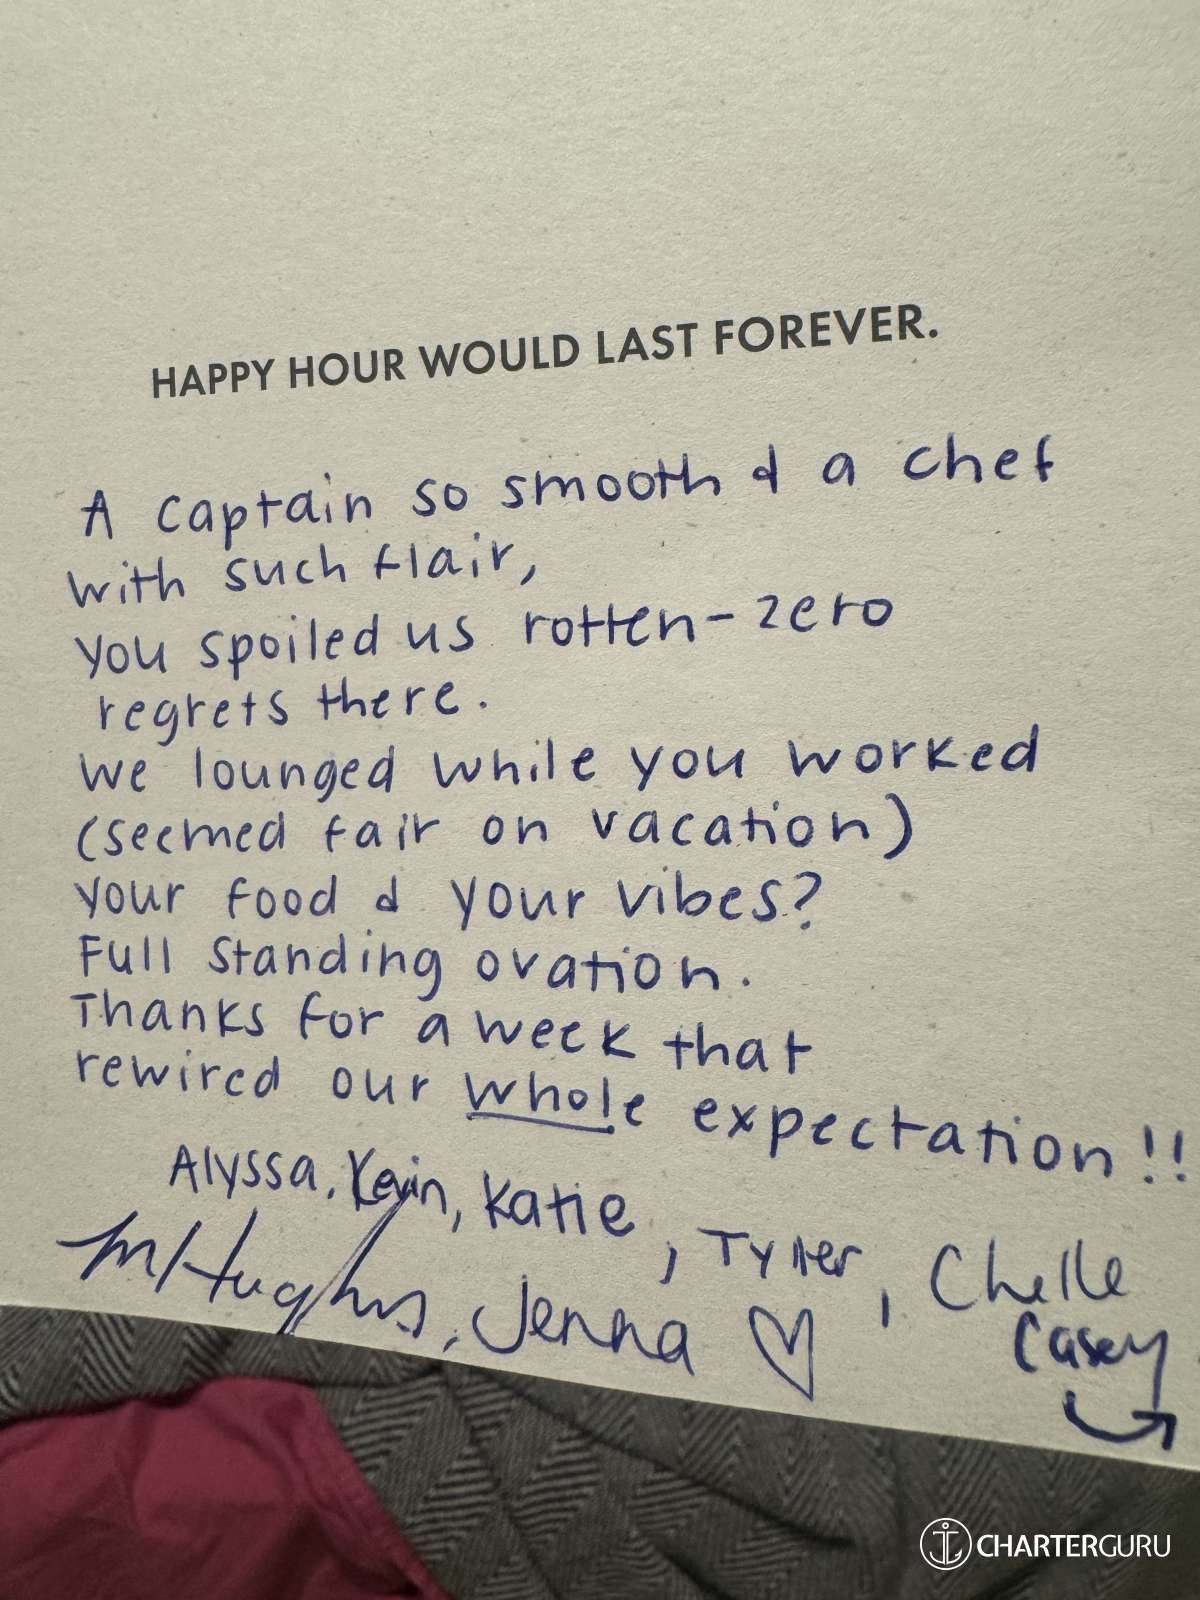 HAPPY HOUR WOULD LAST FOREVER.
A captain so smooth & a chef
with such flair,
You spoiled us rotten-zero
regrets there.
We lounged while you worked
(seemed fair on vacation)
Your food & your vibes?
Full standing ovation.
Thanks for a week that
rewired our whole expectation!!
Alyssa, Kevin, Katie, Tyler, Chelle
M Hughes, Jenna ♡ Casey
CHARTERGURU